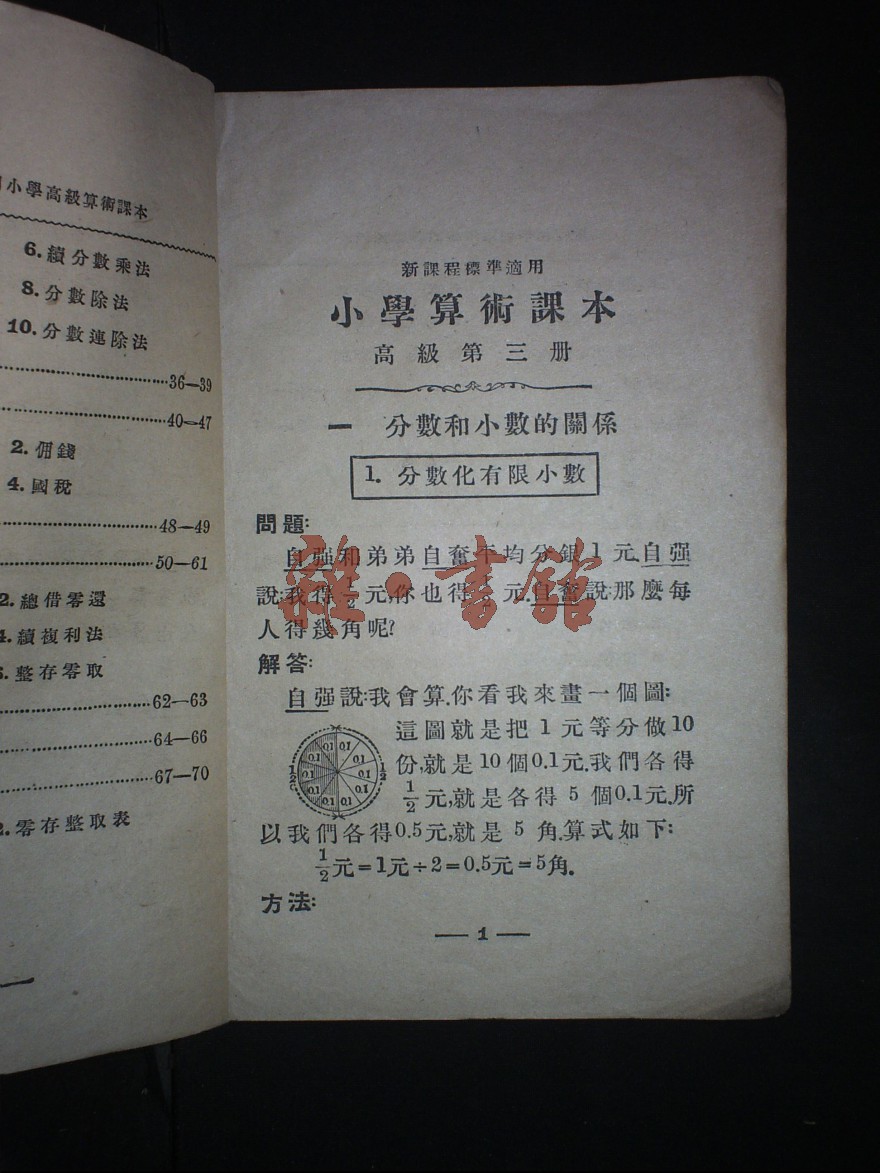 小學高級算術課本
6.續分數乘法
8.分數除法
10.分數連除法
36—39
40—47
2.佣錢
4.國稅
48—49
50—61
2.總借零還
4.續複利法
6.整存零取
62—63
64—66
67—70
2.零存整取表
新課程標準適用
小學算術課本
高級第三册
一 分數和小數的關係
1. 分數化有限小數
問題:
自强和弟弟自奮平均分銀1元.自强
說:我得1/2元,你也得1/2元.自奮說:那麼每
人得幾角呢?
解答:
自强說:我會算.你看我來畫一個圖:
這圖就是把1元等分做10
份,就是10個0.1元.我們各得
1/2元,就是各得5個0.1元.所
以我們各得0.5元,就是5角.算式如下:
1/2 0.1 0.1 0.1 0.1 0.1 0.1 0.1 0.1 0.1 0.1 1/2
1/2元=1元÷2=0.5元=5角.
方法:
— 1 —
雜·書館